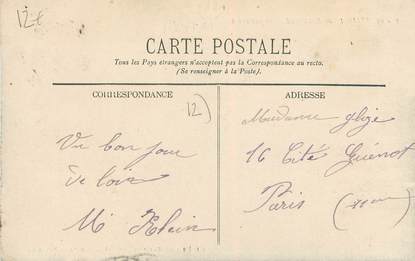 12€
CARTE POSTALE
Tous les Pays étrangers n'acceptent pas la Correspondance au recto.
(Se renseigner à la Poste).
CORRESPONDANCE
12
Un bon jour
de loin
Mr Klein
ADRESSE
Madame
16 Cité Guénot
Paris